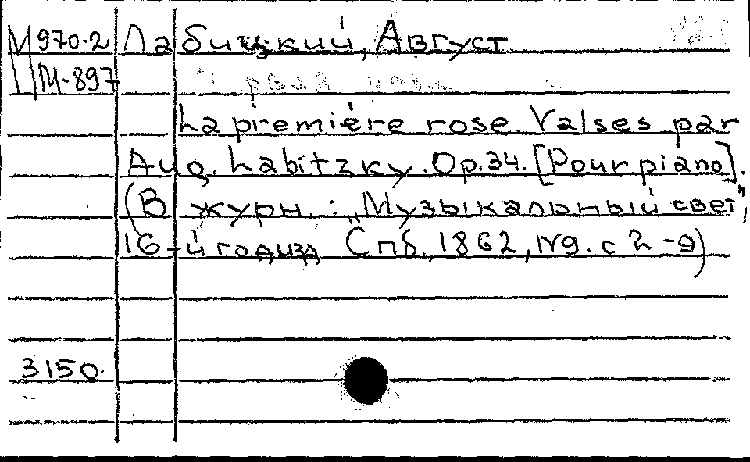 М970-2 Лабицкий, Август
М-897
La première rose Valses par
Aug. Labitzky. Op.34. [Pour piano].
(В журн.: „Музыкальный свет",
16-й год изд Спб., 1862, №9. с 2-9)
3150.